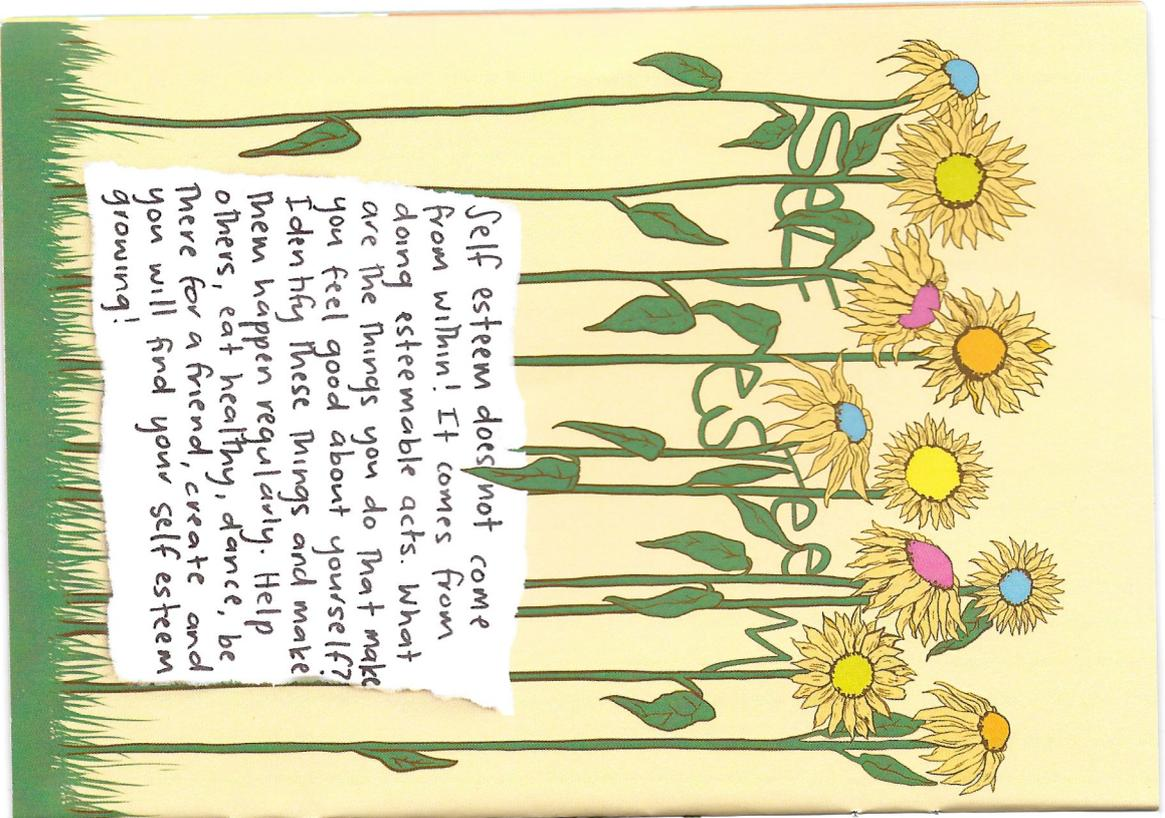 Self esteem
Self esteem does not come
from within! It comes from
doing esteemable acts. What
are the things you do that make
you feel good about yourself?
Identify these things and make
them happen regularly. Help
others, eat healthy, dance, be
there for a friend, create and
you will find your self esteem
growing!